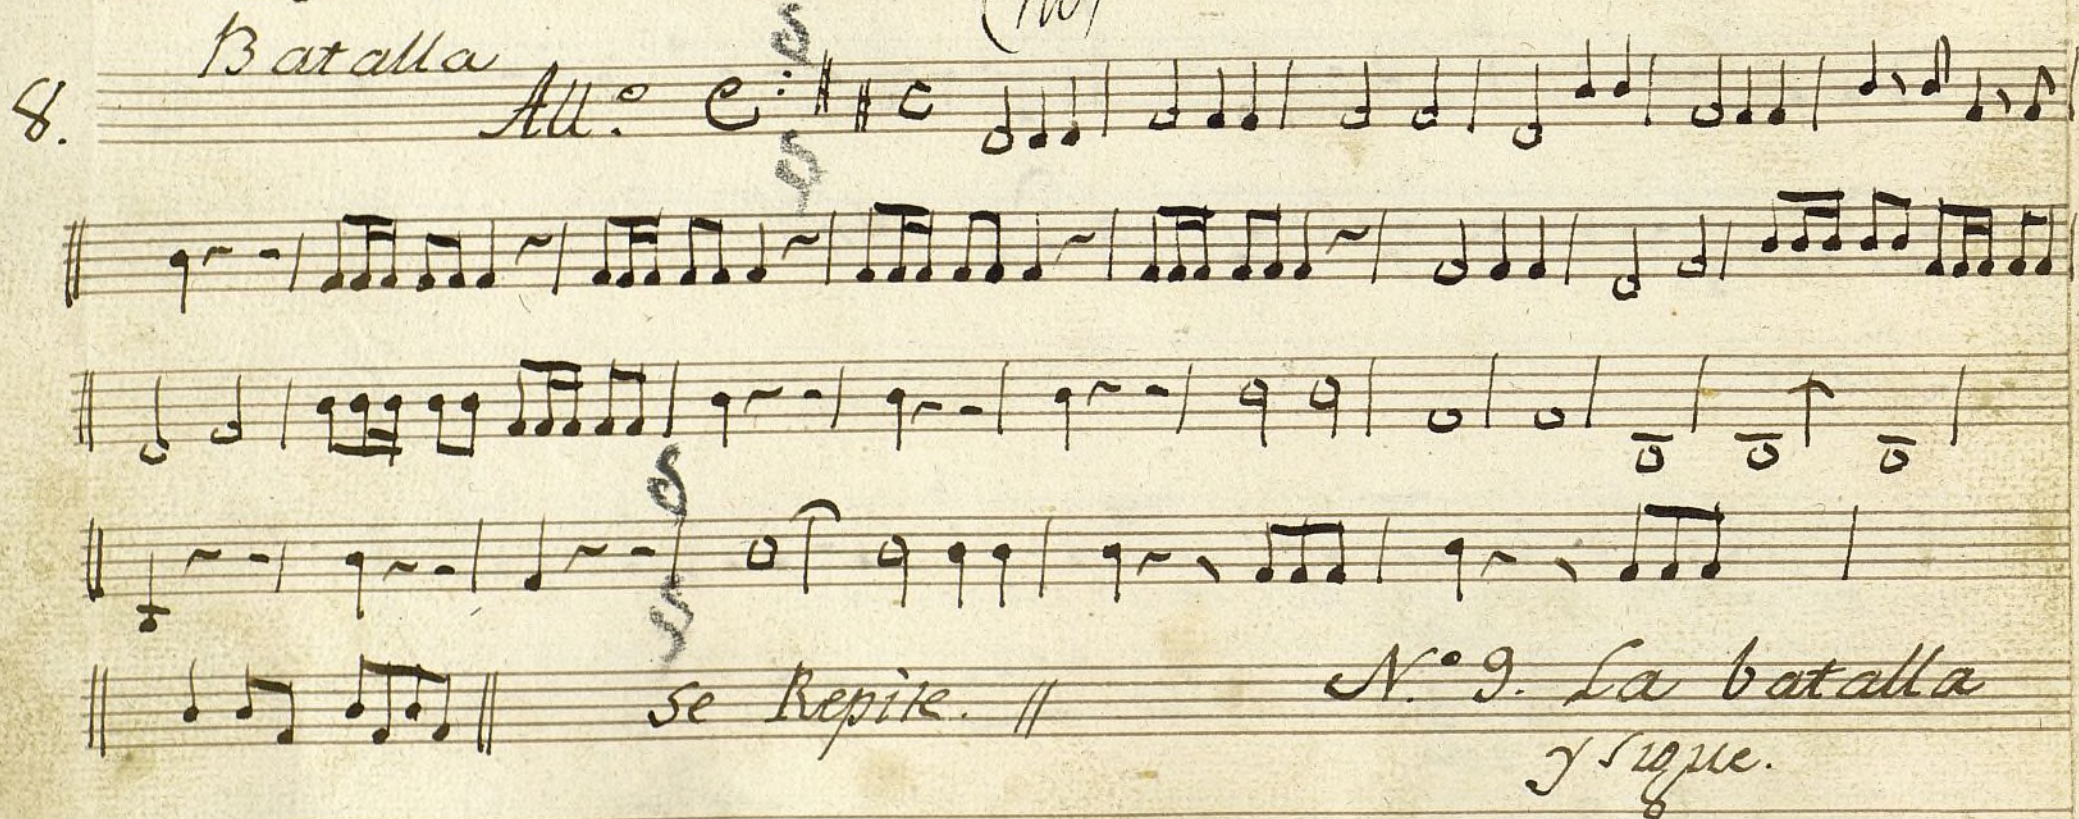 Batalla
8. All.º
se Repite. //
N.º 9. La batalla
y sigue.